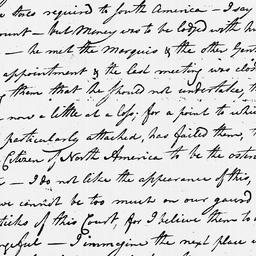 stores required to South America – I say
ount – but Money was to be lodged with h
– he met the Marquis & the other Gen
appointment & the last meeting was clos
g them that he should not undertake, t
now a little at a loss; for a point to whic
particularly attached, has failed them, t
Citizen of North America to be the osten
– I do not like the appearance of this,
we cannot be too much on our guard
ticks of this Court, for I believe them to
ngeful – I immagine the next place w